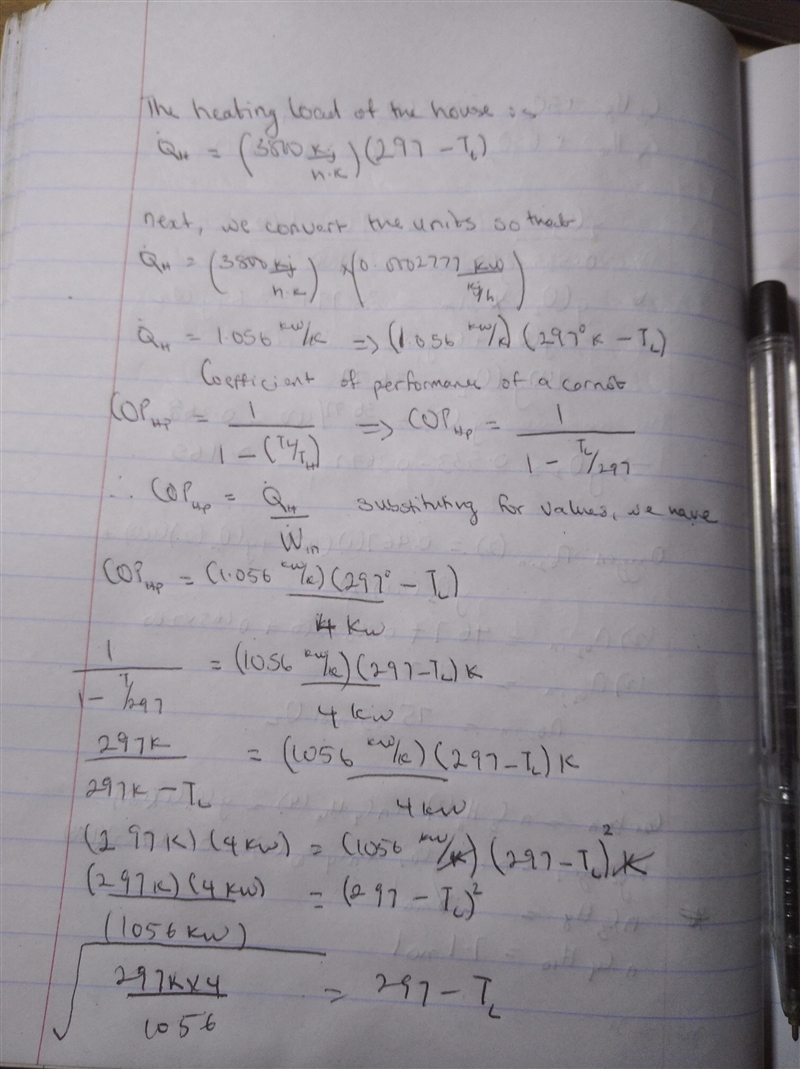 The heating load of the house is
Q̇_H = (3800 Kj/h.K)(297 - T_L)
next, we convert the units so that
Q̇_H = (3800 Kj/h.K) × (0.0002777 KW/Kj/h)
Q̇_H = 1.056 KW/K => (1.056 KW/K)(297°K - T_L)
Coefficient of performance of a carnot
COP_HP = 1/(1 - (T_L/T_H)) => COP_HP = 1/(1 - T_L/297)
∴ COP_HP = Q̇_H/Ẇ_in substituting for values, we have
COP_HP = (1.056 KW/K)(297° - T_L)/4 KW
1/(1 - T/297) = (1056 KW/K)(297 - T_L)K/4 KW
297K/(297K - T_L) = (1056 KW/K)(297 - T_L)K/4KW
(297K)(4KW) = (1056 KW/K)(297 - T_L)²K
(297K)(4KW)/(1056KW) = (297 - T_L)²
√(297K×4/1056) = 297 - T_L